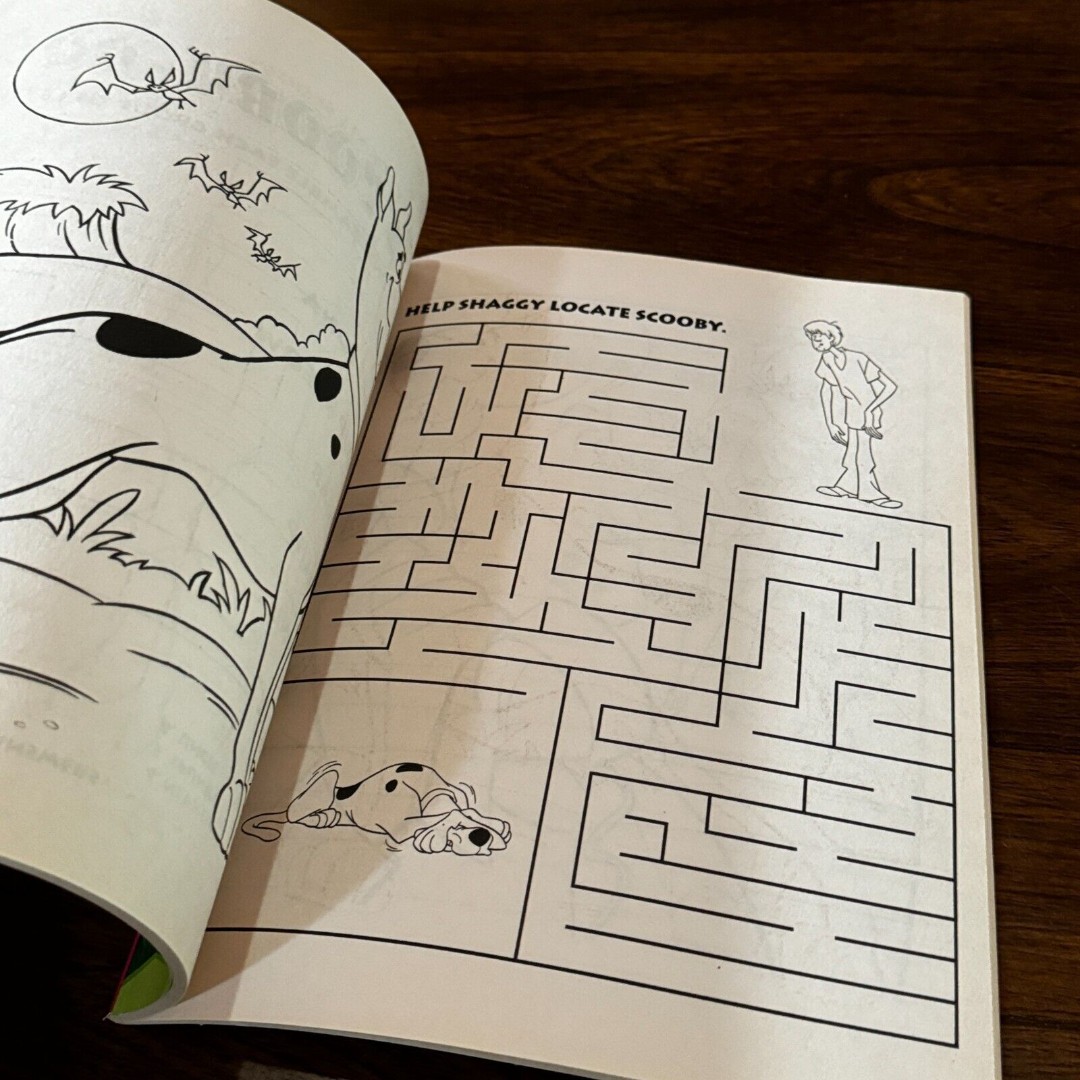 HELP SHAGGY LOCATE SCOOBY.